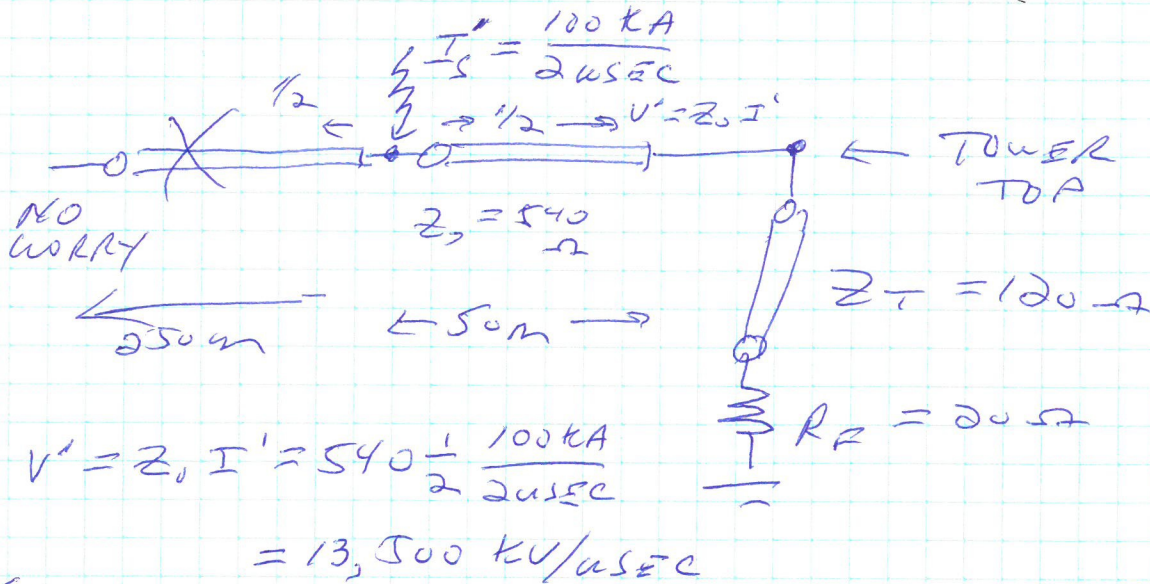 I's = 100 KA / 2 uSEC
1/2 ← → 1/2 → V' = Z₀ I'
← TOWER
TOP
NO
WORRY
Z₀ = 540
Ω
Z_T = 120 Ω
250 m
← 50 m →
R_F = 20 Ω
V' = Z₀ I' = 540 1/2 100 KA / 2 uSEC
= 13,500 KV/uSEC